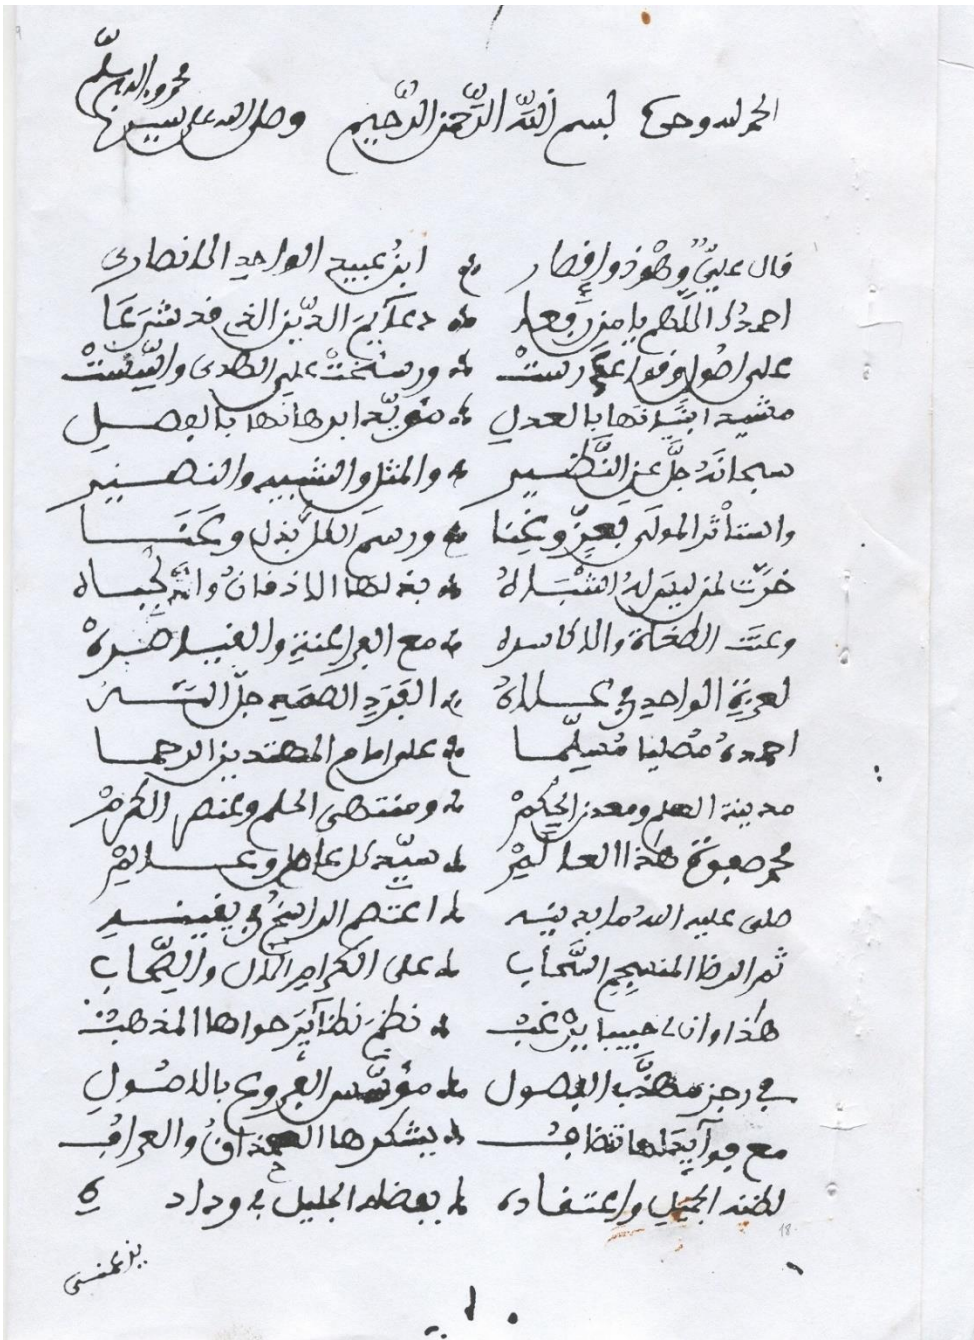 محمد وآله وسلم
الحمد لله وحده بسم الله الرحمن الرحيم وصلى الله على سيدنا
قال علي وهو ذو افتقار ابن عبيد الواحد الانصاري
احمدك اللهم يا من رفعا دعائم الدين الذي قد شرعا
على اصول وقواعد رست ورسخت على الهدى وأسست
مشيدا بنيانها بالعدل مؤيدا برهانها بالفصل
سبحانه جل عن النظير والمثل والشبيه والنصير
واستأثر المولى بعز وغنا ورسم الكل بذل وعنا
خرت لمن ليس له اشباه بذلها الاذقان والجباه
وعنت الطغاة والاكاسره مع الفراعنة والقياصره
لعزة الواحد في علاه الفرد الصمد جل الله
احمده مصليا مسلما على امام المهتدين الرحما
مدينة العلم ومعدن الحكم ومنتهى الحلم وعنصر الكرم
محمد صفوة هذا العالم سيد كل عامل وعالم
صلى عليه الله ما بدينه اعتصم الراسخ في يقينه
ثم الرضا المنسجم السحاب على الكرام الآل والصحاب
هذا وان لي حبيبا يرغب نظم نظائر حواها المذهب
في رجز مهذب الفصول مؤسس الفروع بالاصول
مع فوائد لها تضاف يشكرها الحذاق والعراف
لظنه الجميل واعتقاده بفضله الجليل في وداد
18